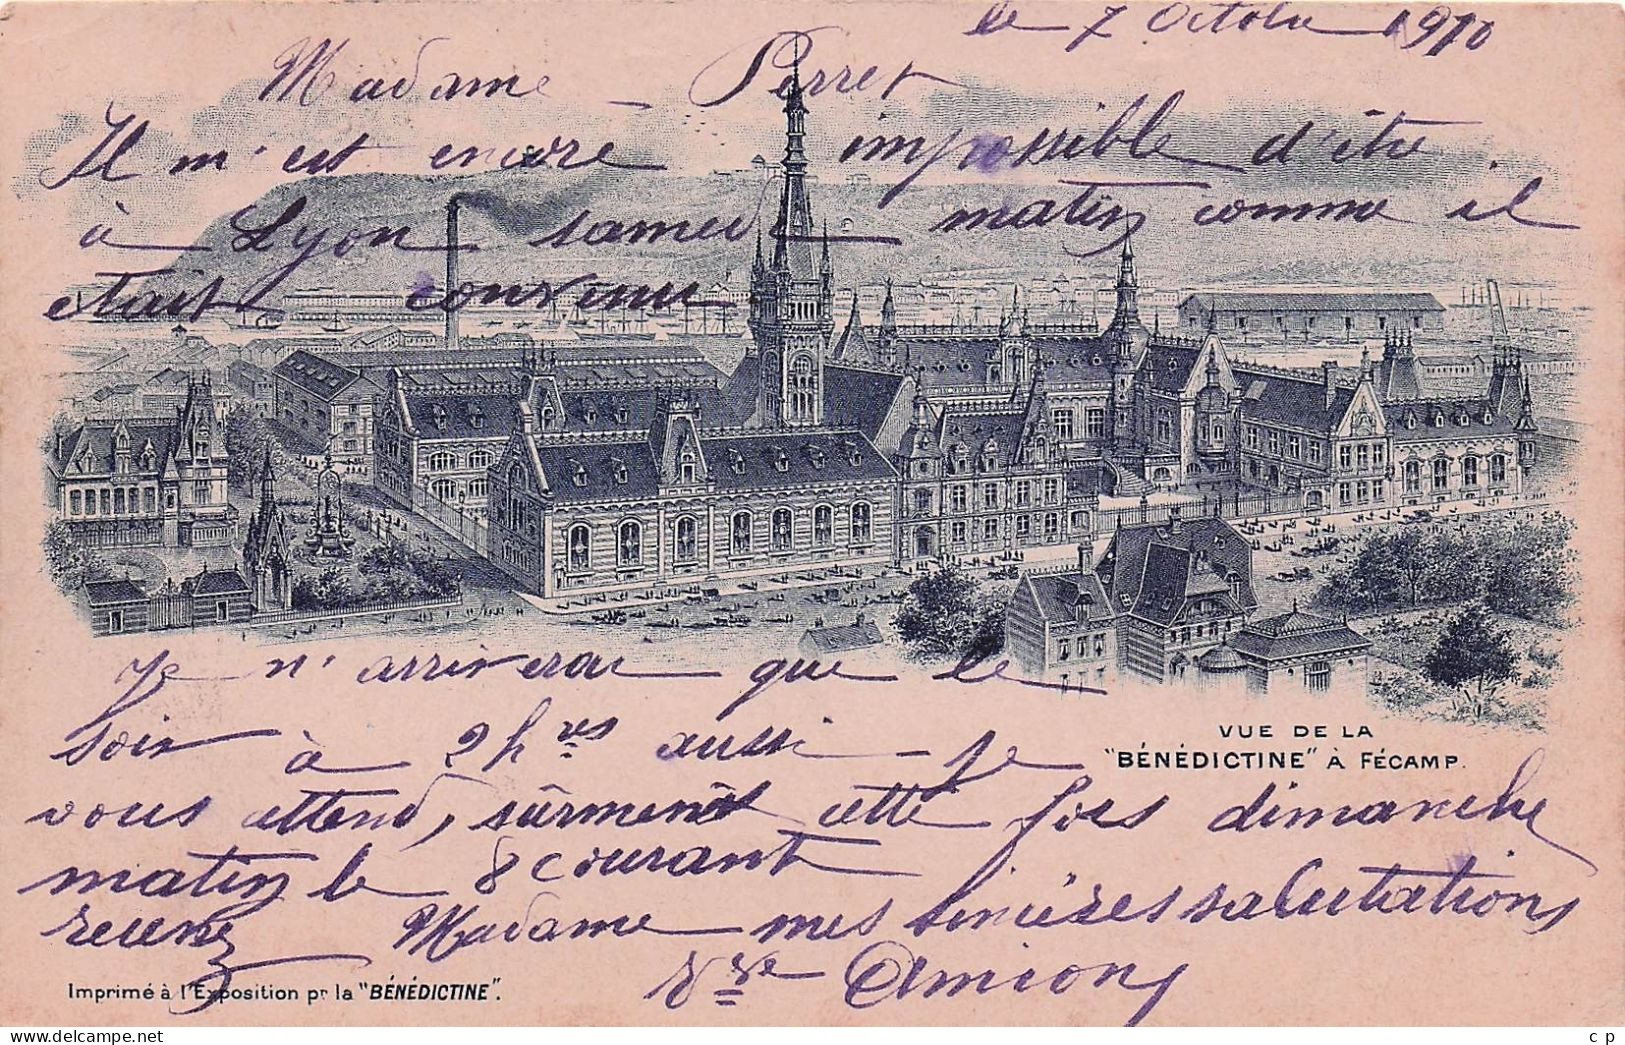 le 7 Octobre 1910
Madame Perret
Il m'est encore impossible d'être
à Lyon samedi matin comme il
était convenu
Je n'arriverai que le
soir à 2 hres aussi je
vous attend, sûrment cette fois dimanche
matin le 8 courant
recevez Madame mes sincères salutations
Vve Amion
VUE DE LA
"BÉNÉDICTINE" À FÉCAMP.
Imprimé à l'Exposition pr la "BÉNÉDICTINE".
© delcampe.net
c p